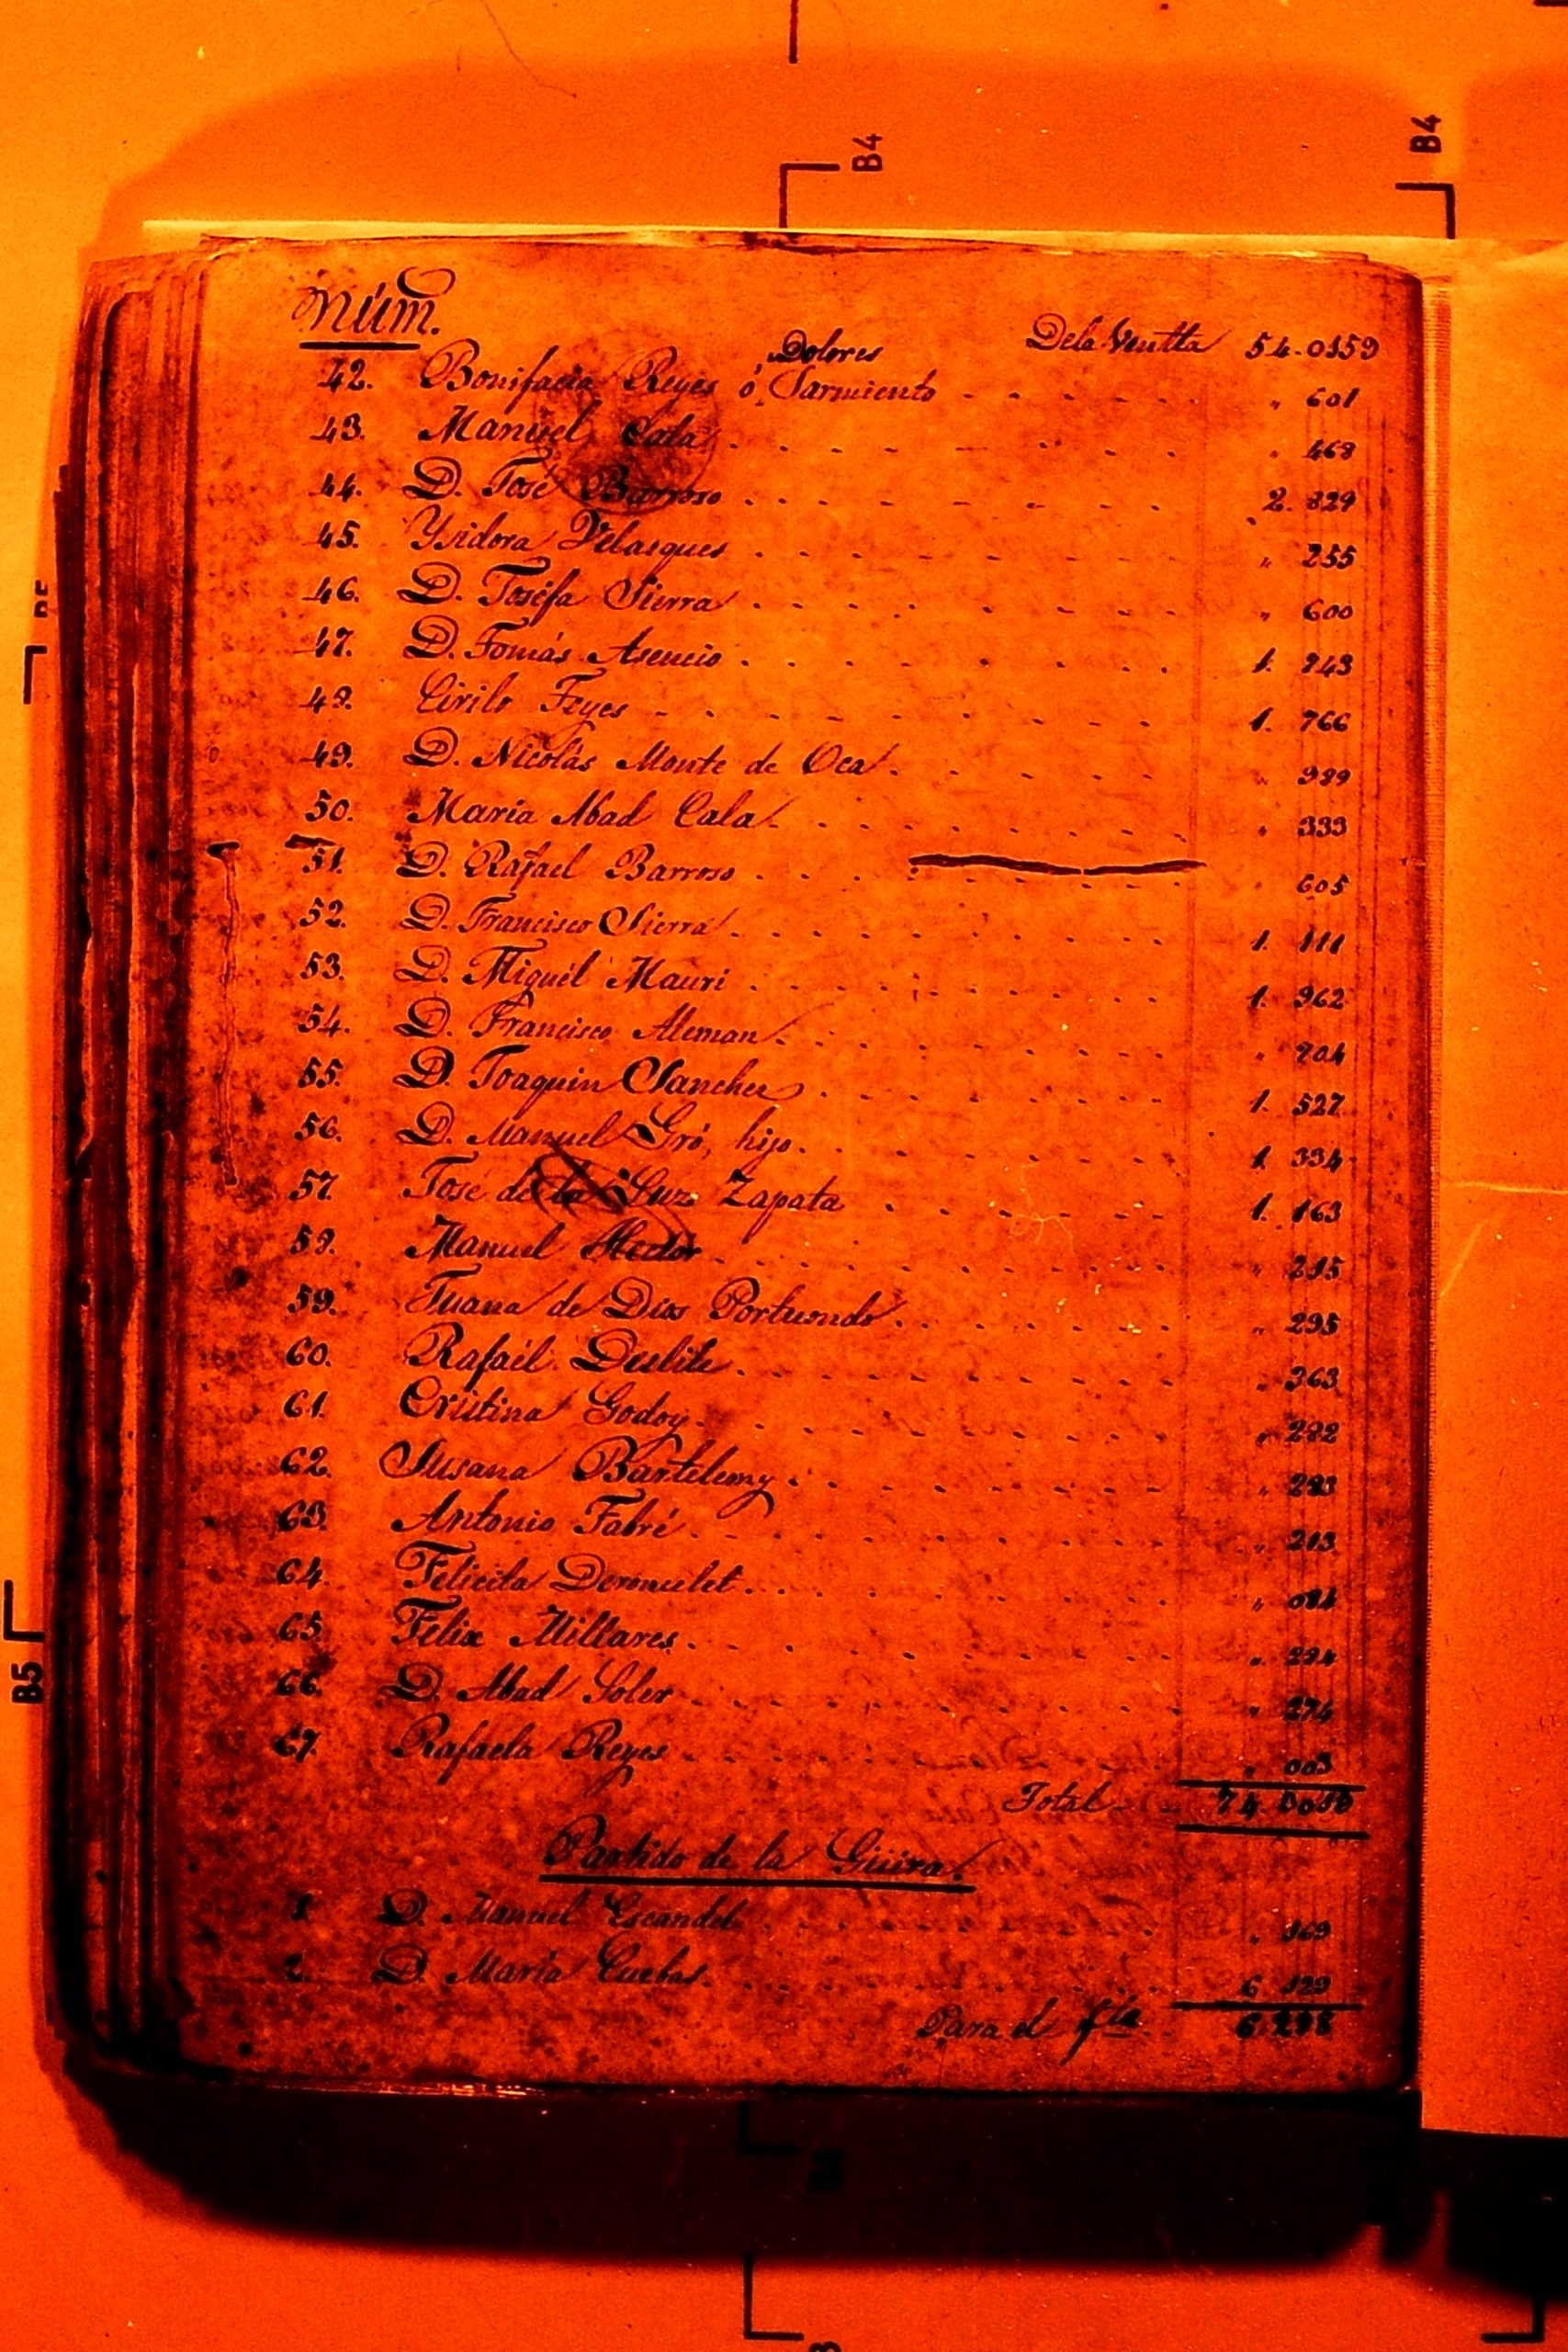 B4
B4
Núm.
Dela Vuelta 54.0159
Dolores
42. Bonifacia Reyes ó Sarmiento . . . . . " 601
43. Manuel Cala . . . . . " 468
44. D. José Barroso . . . . . 2. 829
45. Ysidora Velasques . . . . . " 255
46. D. Joséfa Sierra . . . . . " 600
47. D. Tomás Asencio . . . . . 1. 843
48. Cirilo Feyes . . . . . 1. 766
49. D. Nicolás Monte de Oca . . . . . " 989
50. María Abad Cala . . . . . " 333
51. D. Rafael Barroso . . . . . 605
52. D. Francisco Sierra . . . . . 1. 111
53. D. Miguél Mauri . . . . . 1. 962
54. D. Francisco Aleman . . . . . " 804
55. D. Joaquin Sanchez . . . . . 1. 527
56. D. Manuel Gró, hijo . . . . . 1. 334
57. José de la Luz Zapata . . . . . 1. 163
58. Manuel Hector . . . . . "
59. Juana de Dios Portuondo . . . . . " 295
60. Rafaél . . . . . " 363
61. Cristina Godoy . . . . . " 282
62. Susana Bartelemy . . . . . "
63. Antonio Fabré . . . . . " 213
64. Felicita Deroncelet . . . . . "
65. Felix Millares . . . . . "
66. D. Abad Soler . . . . . " 274
67. Rafaela Reyes . . . . . " 003
Total
Partido de la Güira.
1. D. Manuel Escandel . . . . . " 169
2. D. María Cuebas . . . . . 6 129
Para el fte 6.298
B5